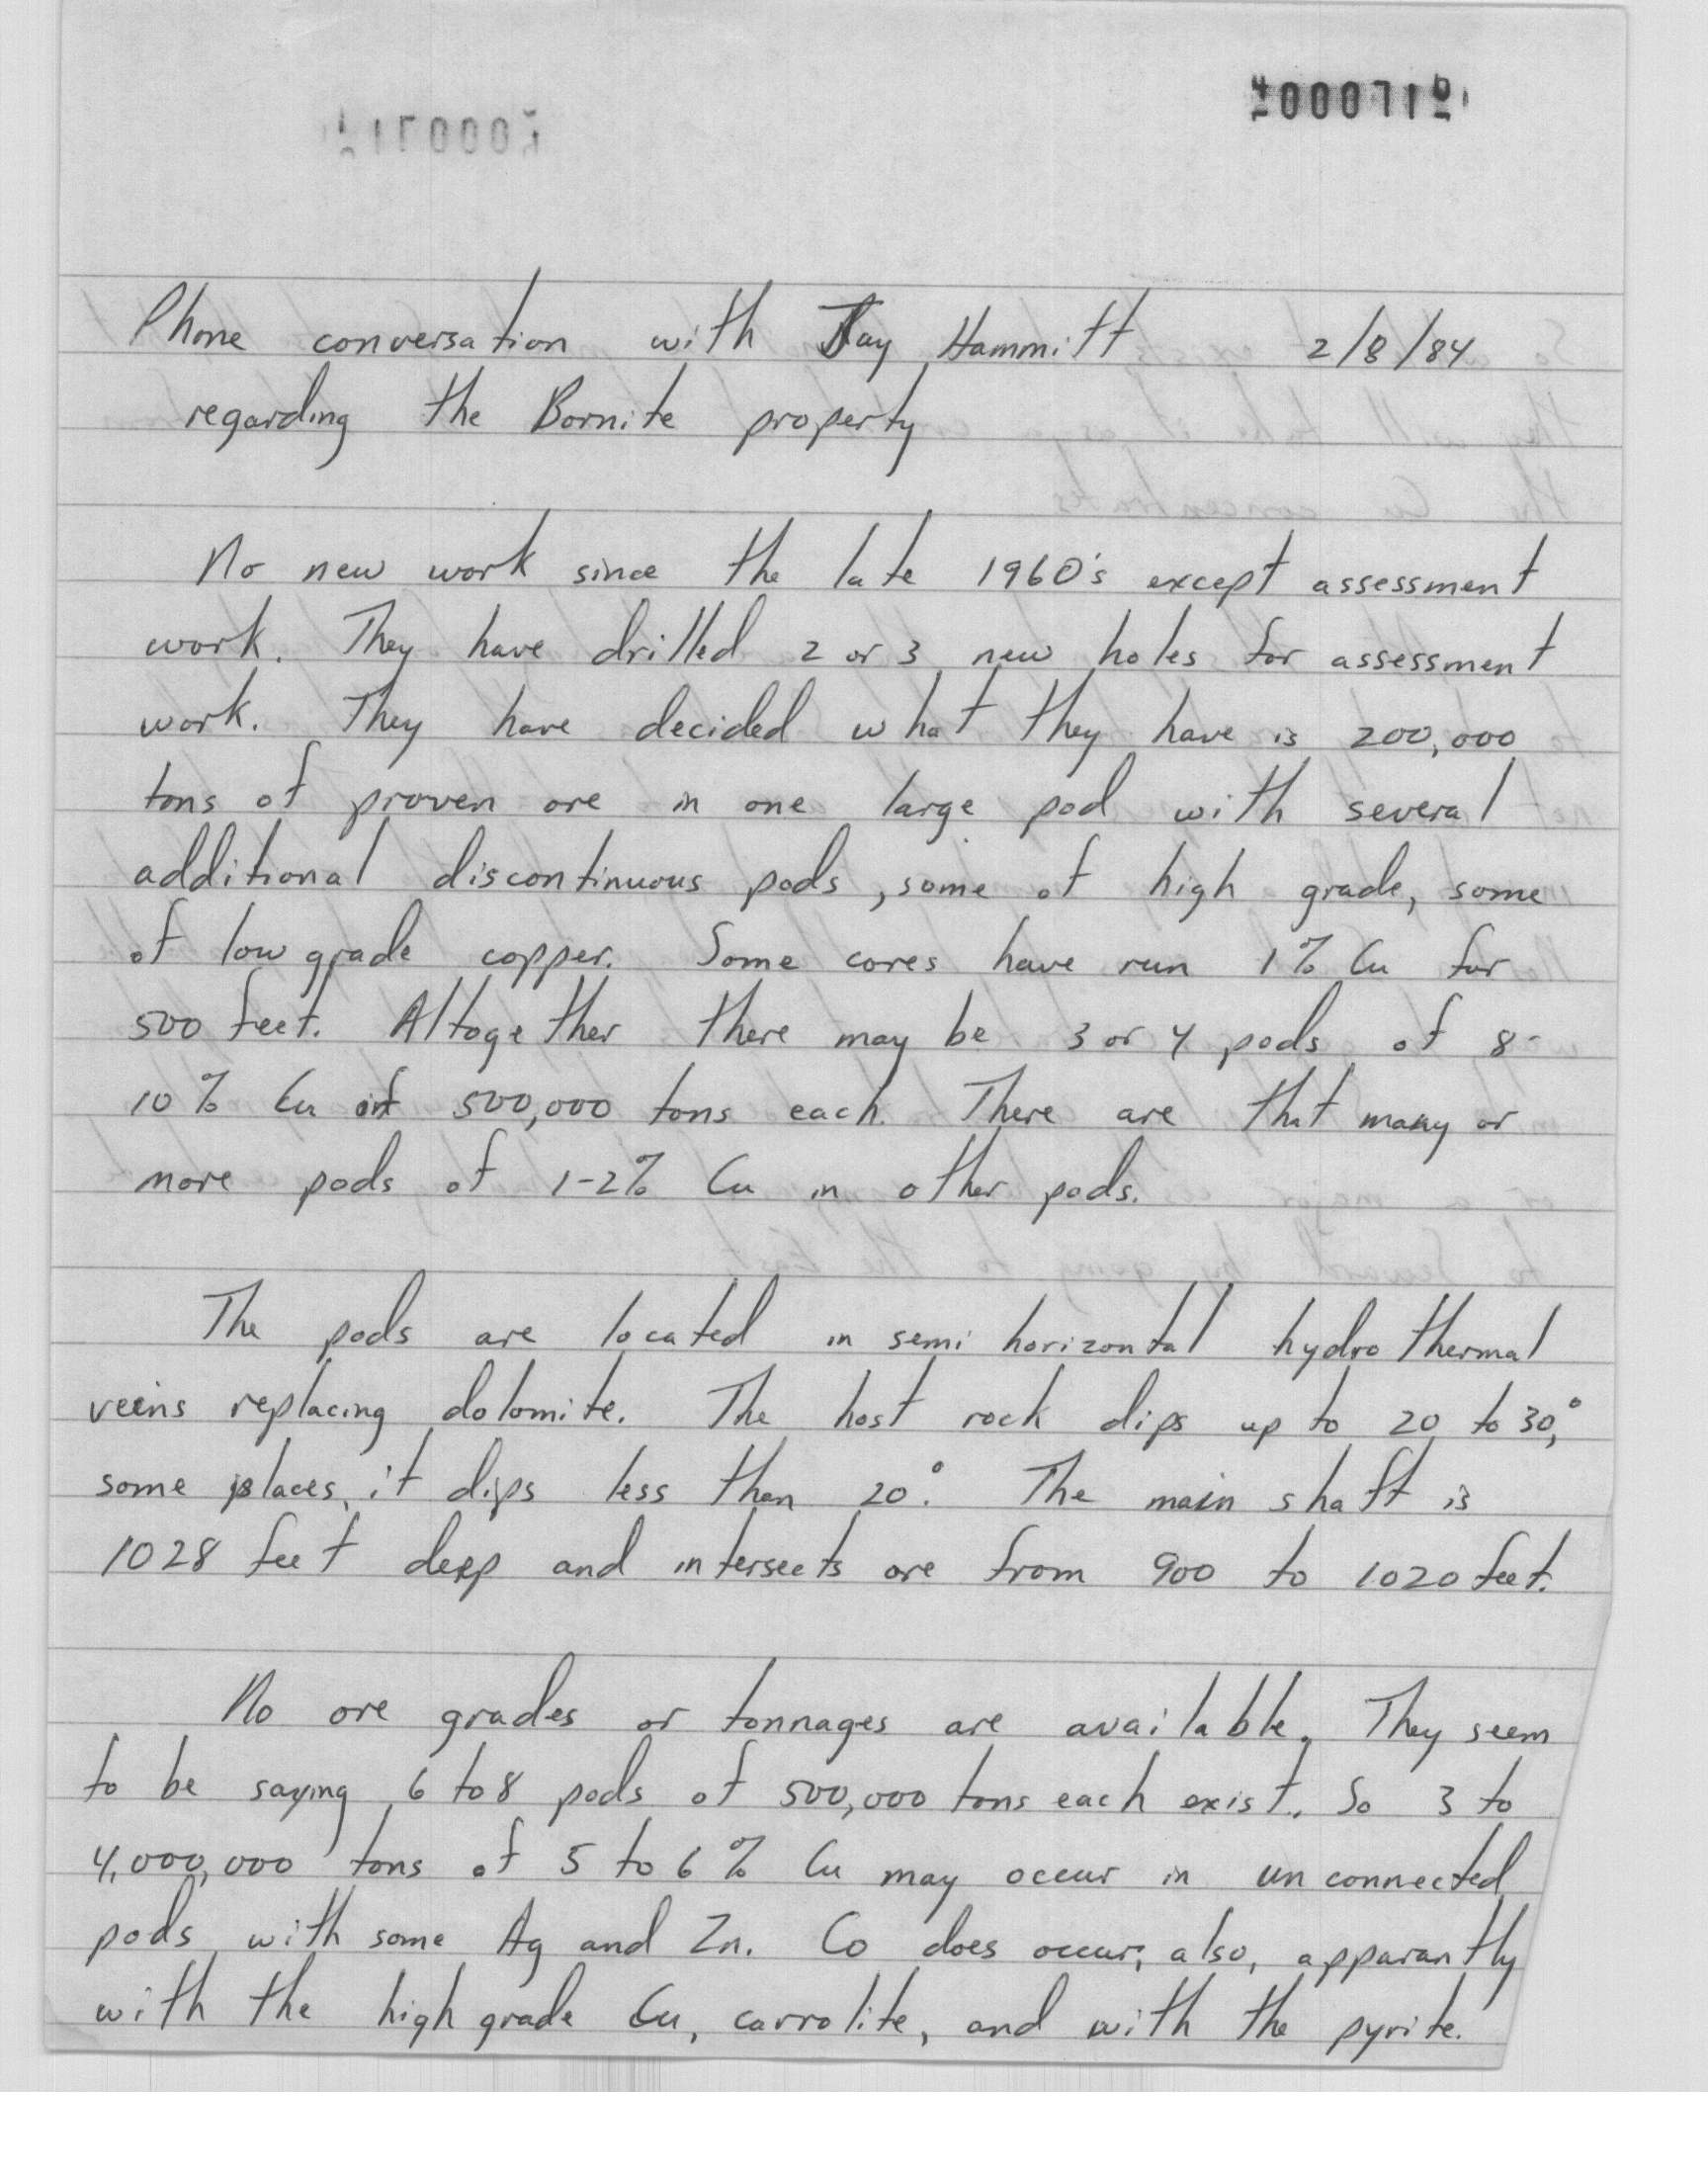 Phone conversation with Jay Hammitt 2/8/84
regarding the Bornite property
No new work since the late 1960's except assessment
work. They have drilled 2 or 3 new holes for assessment
work. They have decided what they have is 200,000
tons of proven ore in one large pod with several
additional discontinuous pods, some of high grade, some
of low grade copper. Some cores have run 1% Cu for
500 feet. Altogether there may be 3 or 4 pods of 8-
10% Cu of 500,000 tons each. There are that many or
more pods of 1-2% Cu in other pods.
The pods are located in semi horizontal hydrothermal
veins replacing dolomite. The host rock dips up to 20 to 30°,
some places, it dips less than 20°. The main shaft is
1028 feet deep and intersects ore from 900 to 1020 feet.
No ore grades or tonnages are available. They seem
to be saying 6 to 8 pods of 500,000 tons each exist. So 3 to
4,000,000 tons of 5 to 6% Cu may occur in unconnected
pods with some Ag and Zn. Co does occur, also, apparantly
with the high grade Cu, carrolite, and with the pyrite.